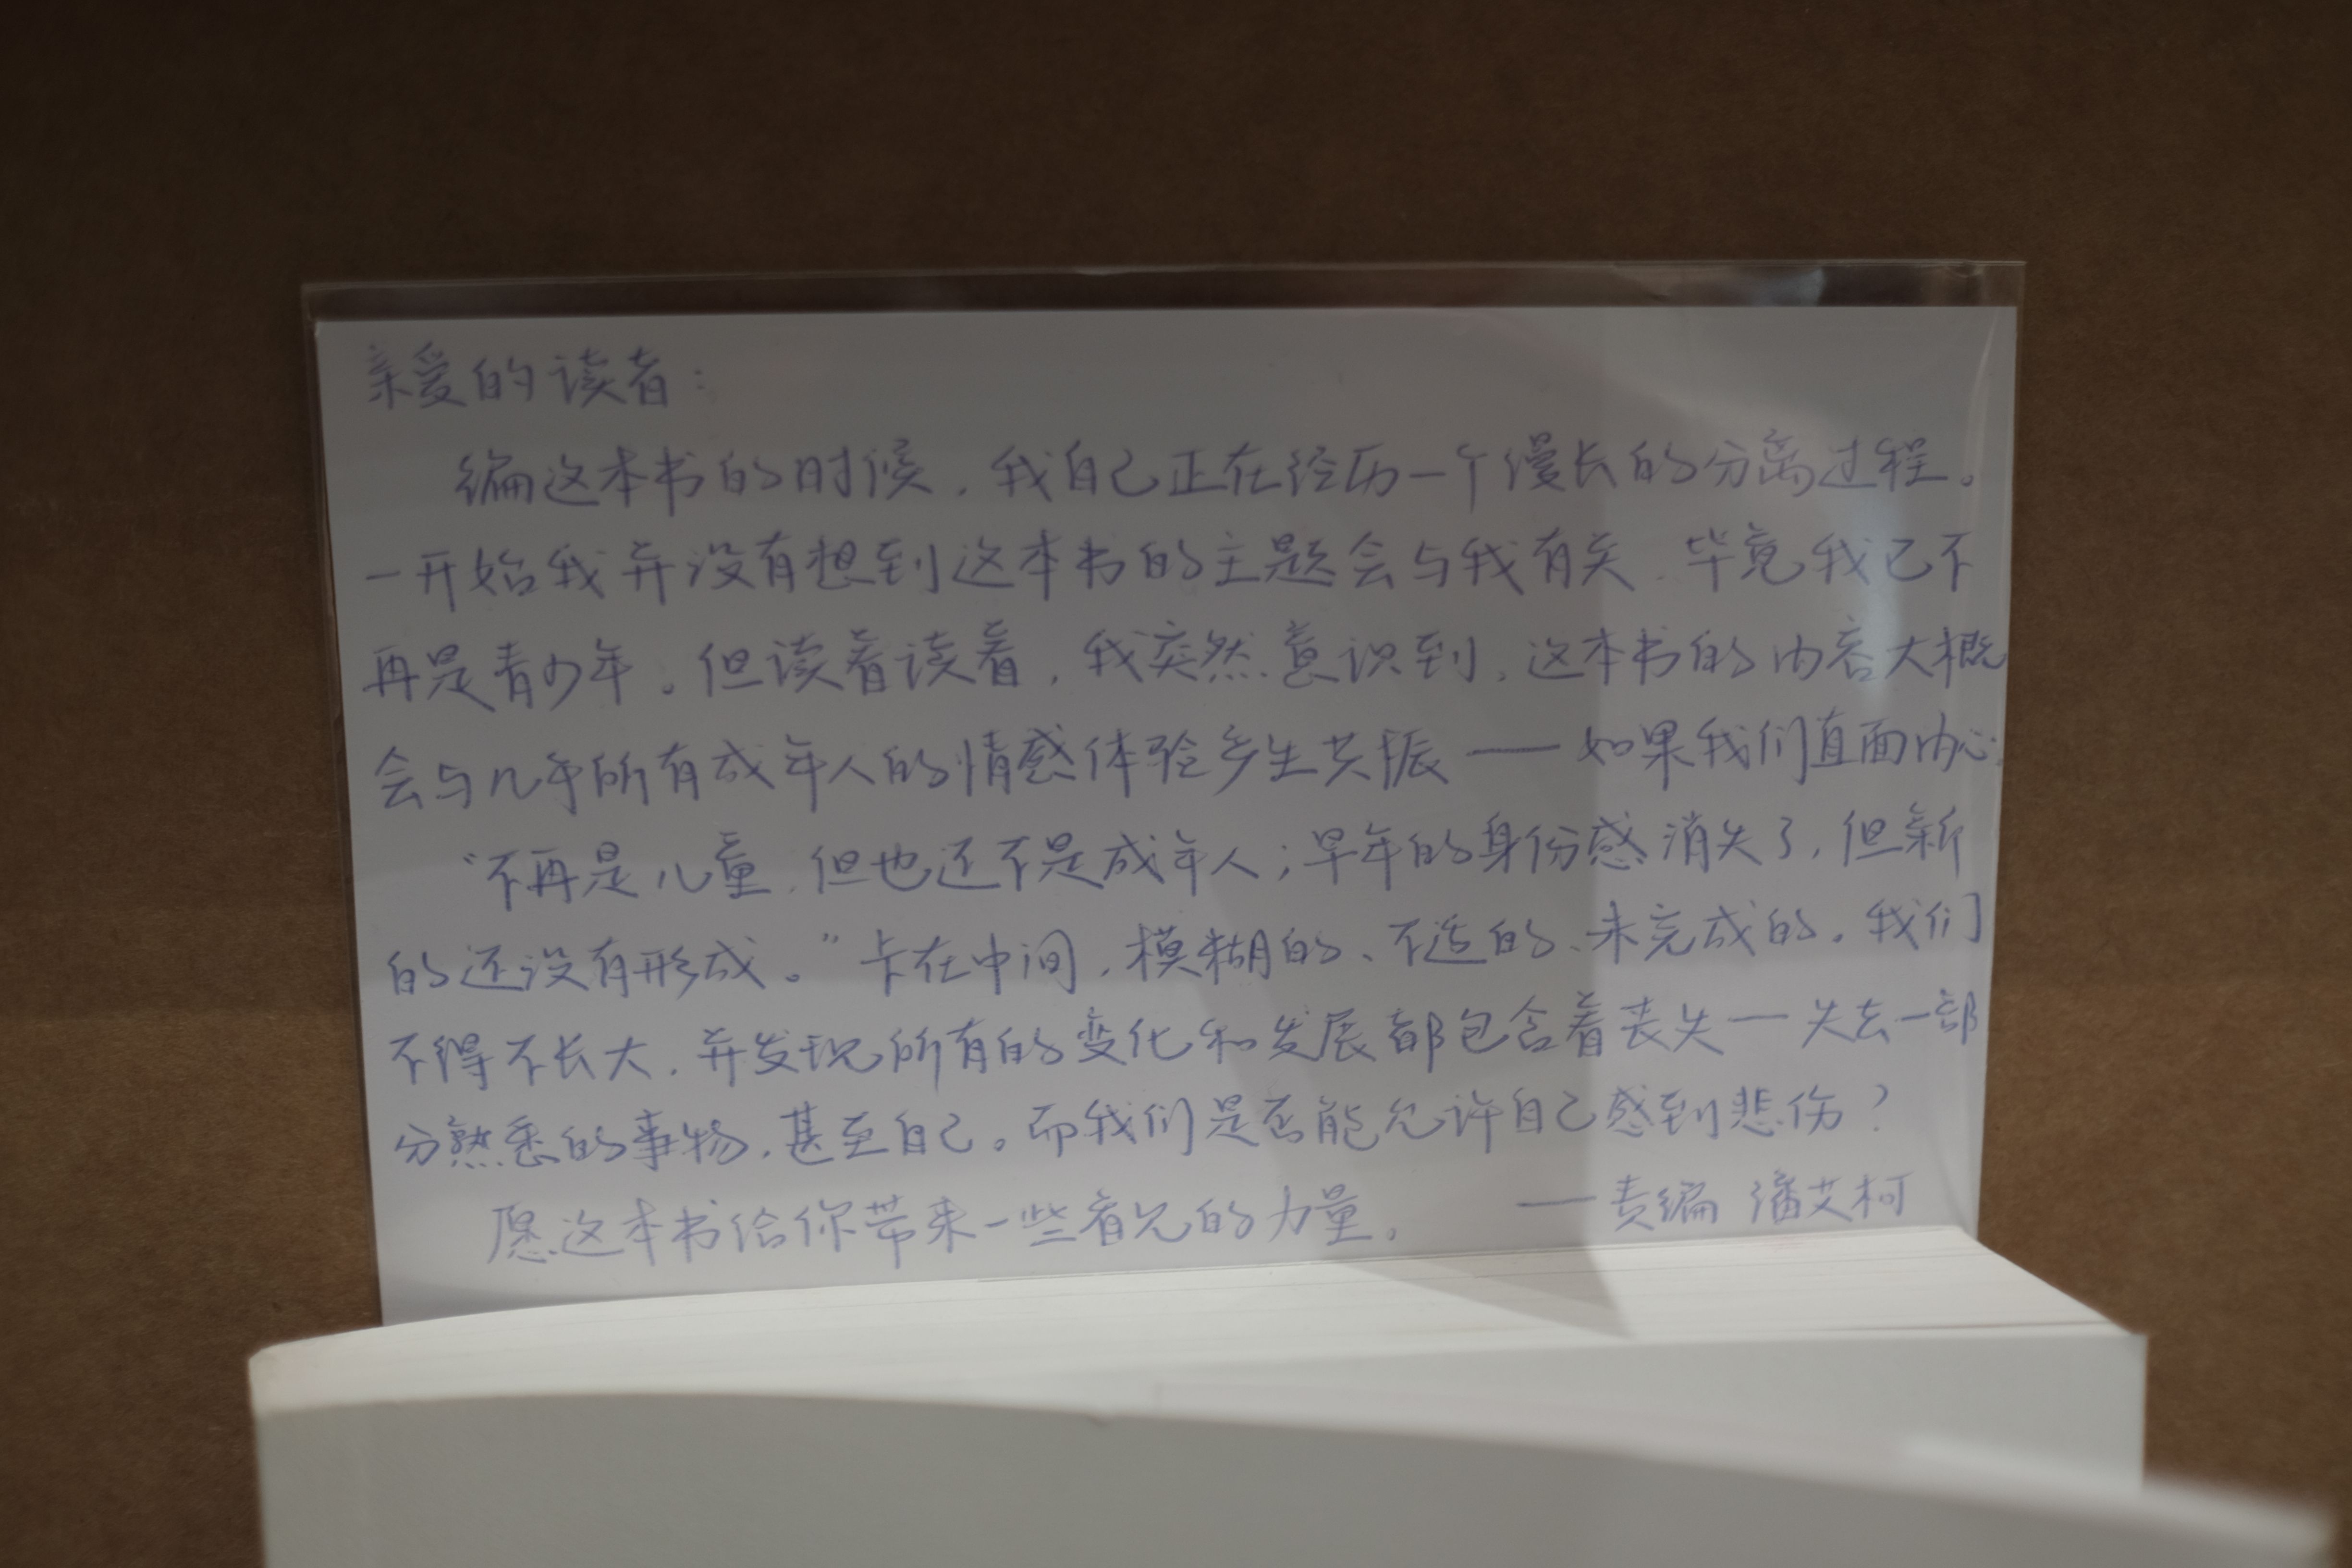 亲爱的读者：
编这本书的时候，我自己正在经历一个漫长的分离过程。
一开始我并没有想到这本书的主题会与我有关，毕竟我已不
再是青少年。但读着读着，我突然意识到，这本书的内容大概
会与几乎所有成年人的情感体验产生共振——如果我们直面内心。
“不再是儿童，但也还不是成年人；早年的身份感消失了，但新
的还没有形成。”卡在中间，模糊的、不适的、未完成的。我们
不得不长大，并发现所有的变化和发展都包含着丧失——失去一部
分熟悉的事物，甚至自己。而我们是否能允许自己感到悲伤？
愿这本书给你带来一些看见的力量。 ——责编 潘艾柯